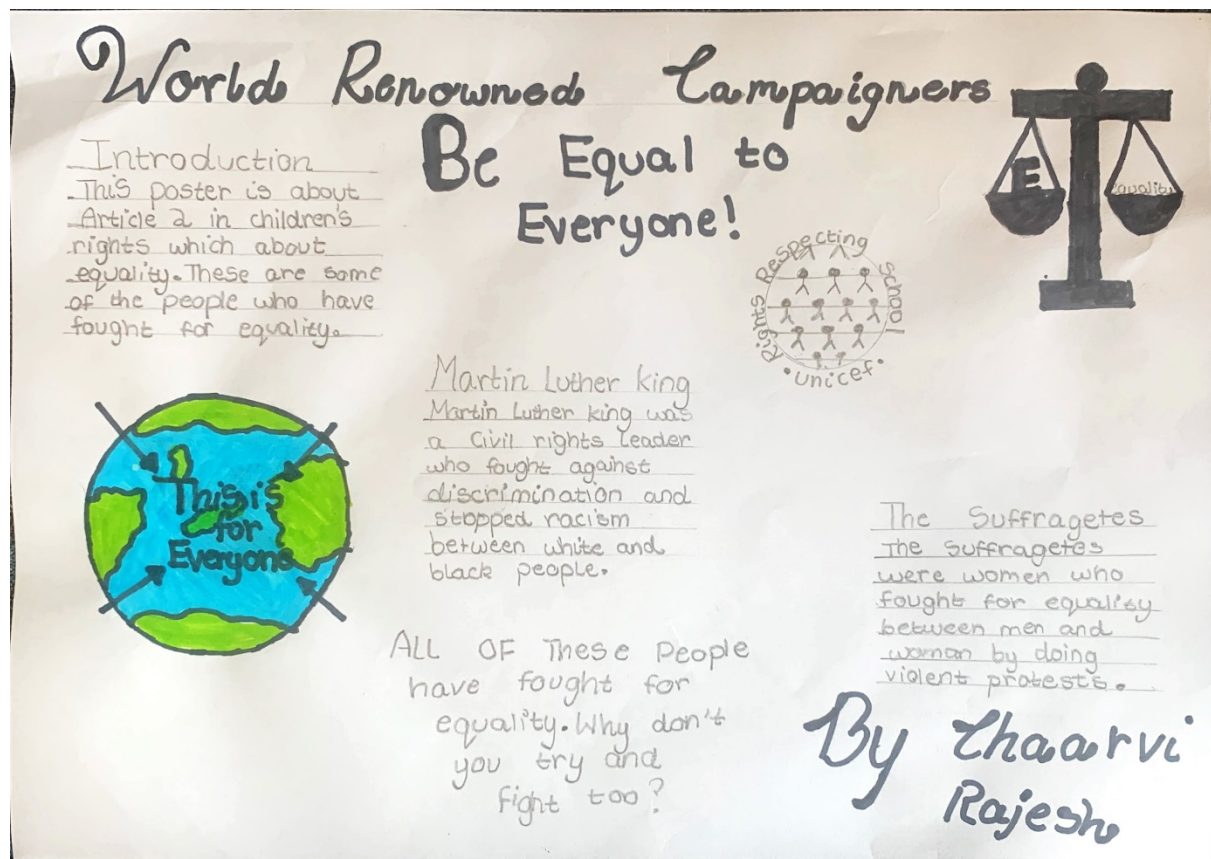 World Renowned Campaigners
Be Equal to
Everyone!
Introduction
This poster is about
Article 2 in children's
rights which about
equality. These are some
of the people who have
fought for equality.
E
quality
Rights Respecting School
• unicef •
This is
for
Everyone
Martin Luther king
Martin Luther king was
a Civil rights leader
who fought against
discrimination and
stopped racism
between white and
black people.
The Suffragetes
The Suffragetes
were women who
fought for equality
between men and
woman by doing
violent protests.
ALL OF These People
have fought for
equality. Why don't
you try and
fight too?
By Chaarvi
Rajesh